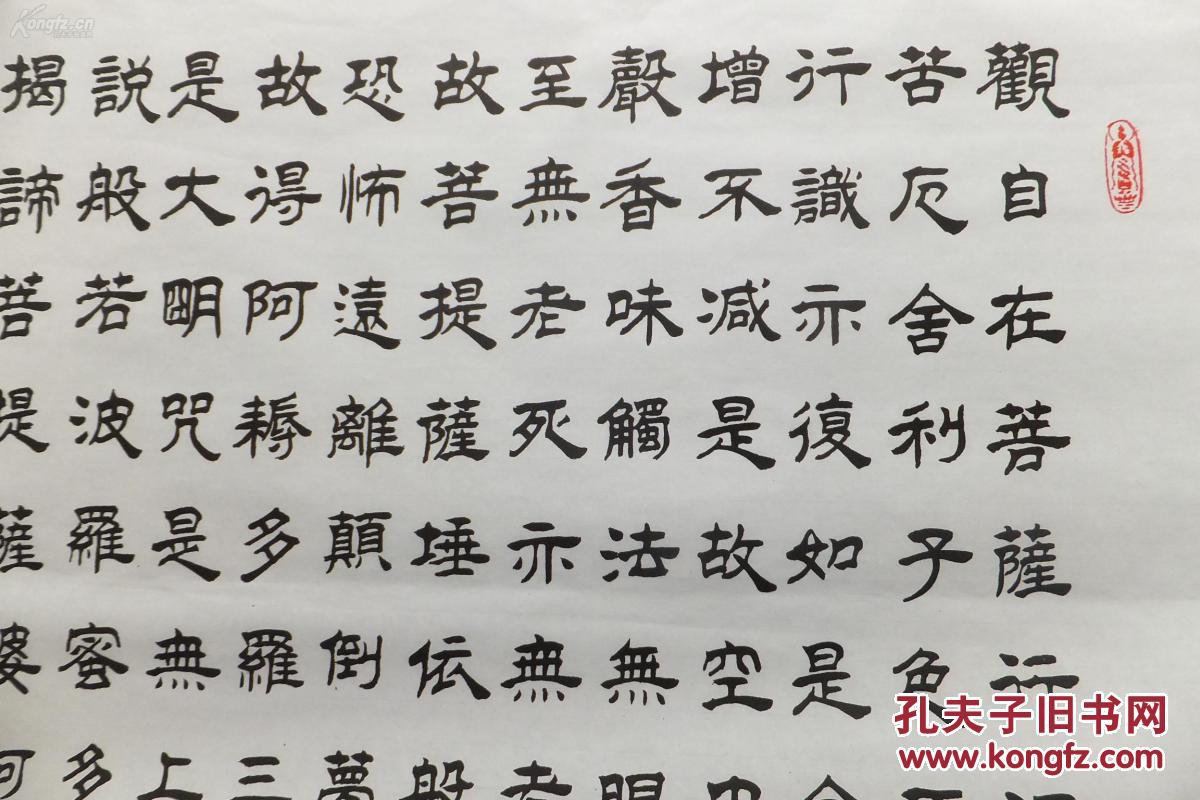 觀自在菩薩行
苦厄舍利子色
行識亦復如是舍
增不減是故空中
聲香味觸法無
至無老死亦無老
故菩提薩埵依般
恐怖遠離顛倒夢
故得阿耨多羅三
是大明咒是無上
説般若波羅蜜多
揭諦菩提薩婆
Kongfz.cn
孔夫子旧书网
www.kongfz.com